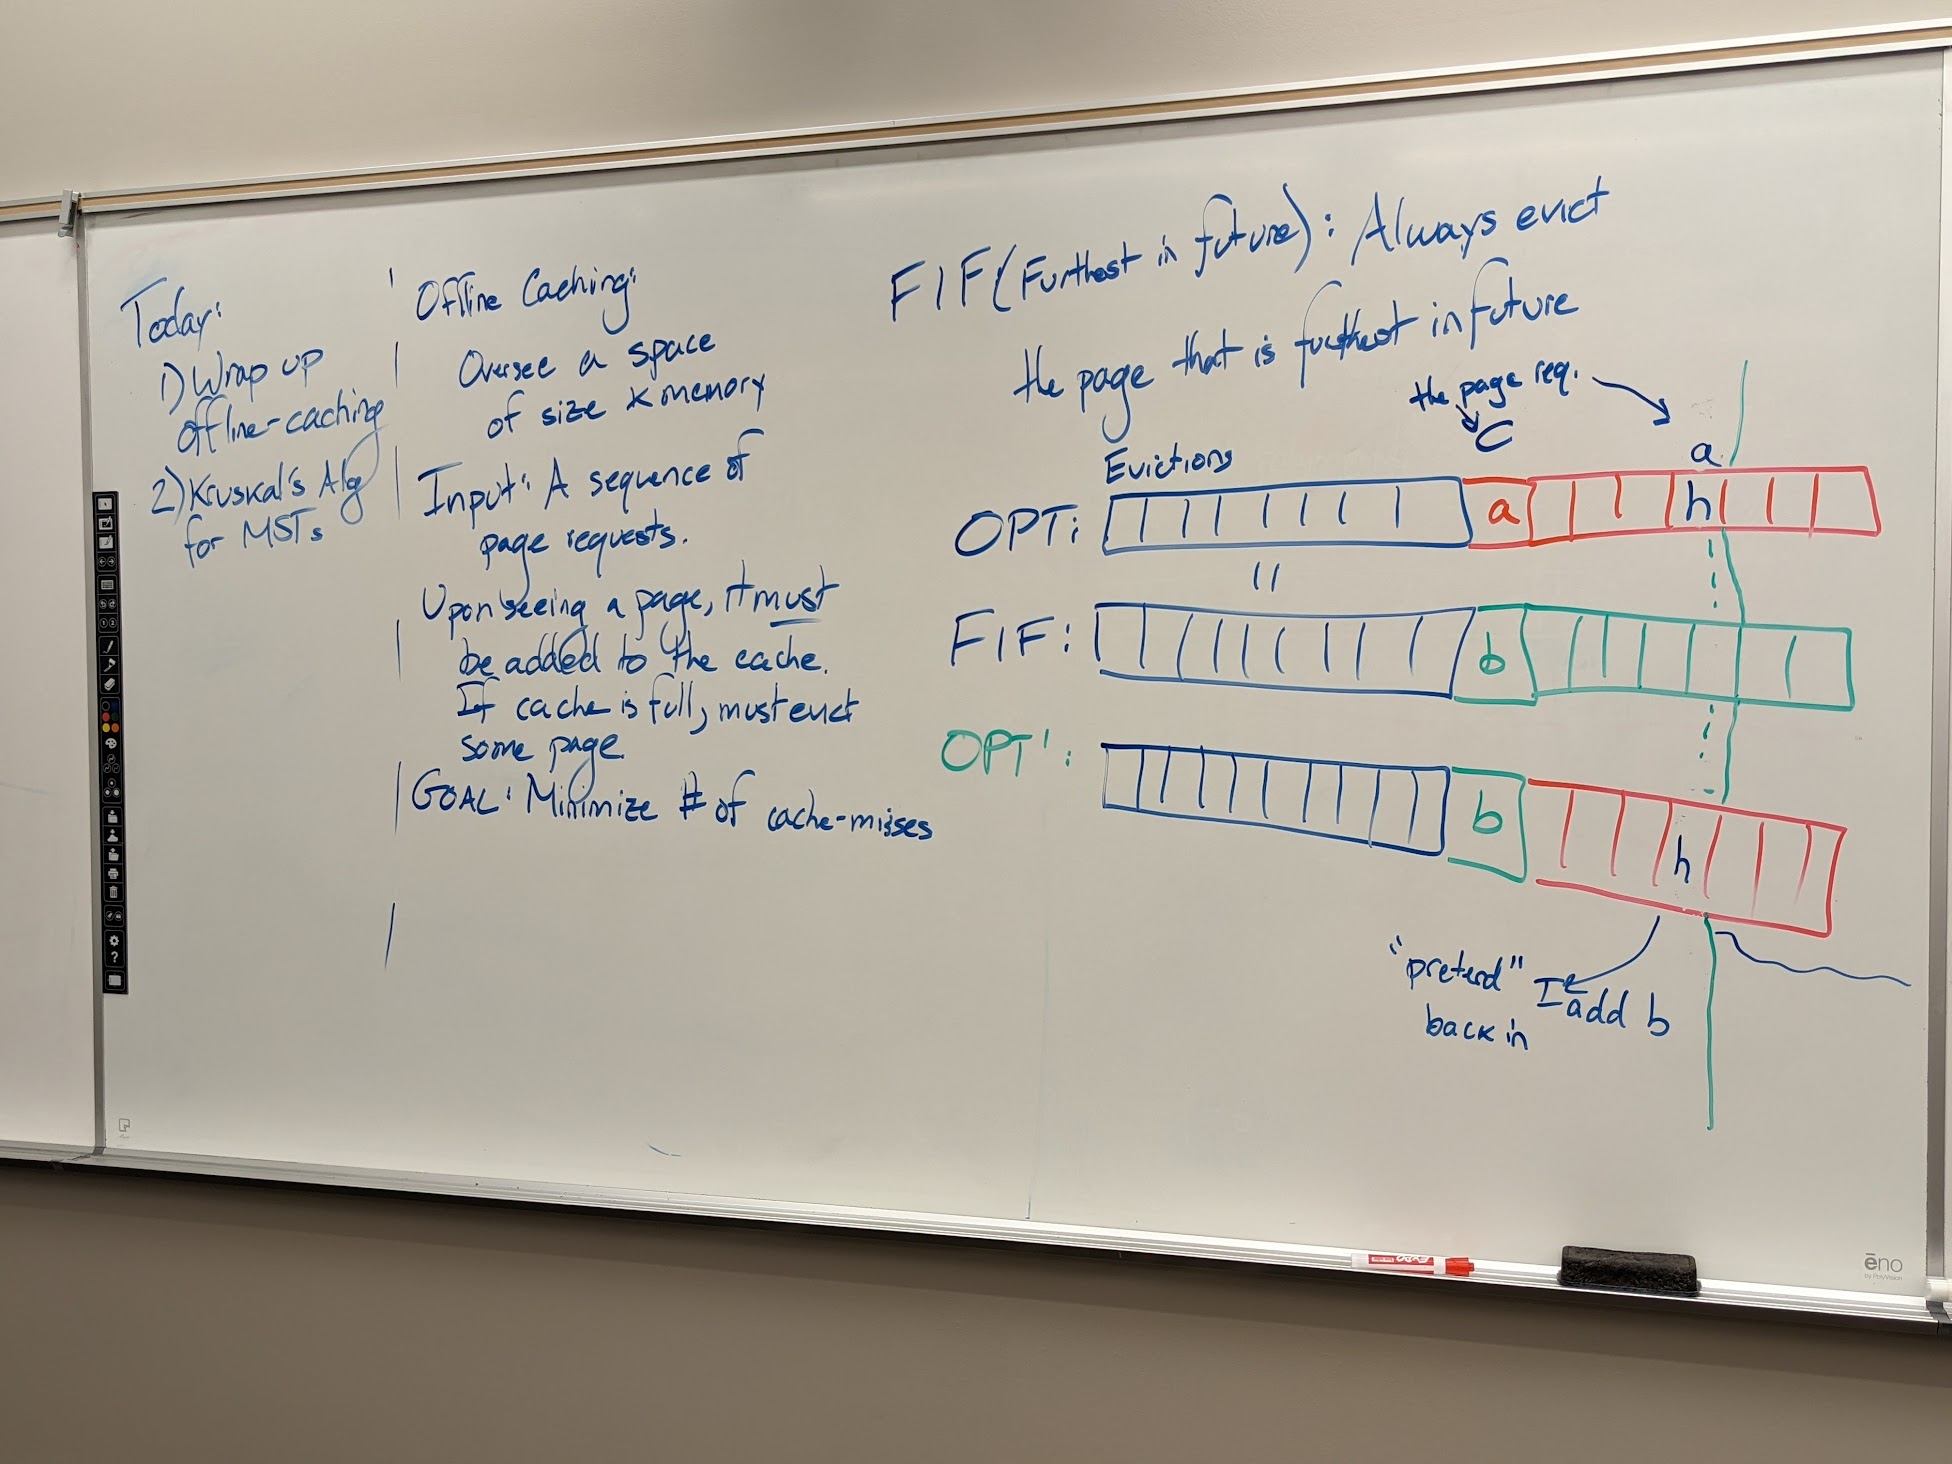 Today:
1) Wrap up
offline-caching
2) Kruskal's Alg
for MSTs
Offline Caching:
Oversee a space
of size k memory
Input: A sequence of
page requests.
Upon seeing a page, it must
be added to the cache.
If cache is full, must evict
some page.
GOAL: Minimize # of cache-misses
FIF (Furthest in future): Always evict
the page that is furthest in future
the page req.
C
a
Evictions
OPT: a h
=
FIF: b
OPT': b h
"pretend" I add b
back in
ēno
by PolyVision